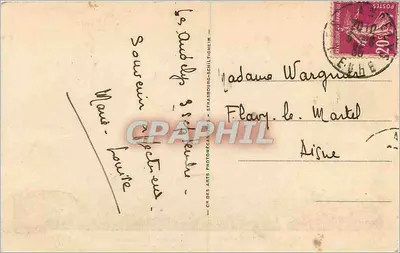 Les Andelys 2 septembre -
Souvenir affectueux -
Marie-Louise
Cie DES ARTS PHOTOMÉCANIQUES - STRASBOURG-SCHILTIGHEIM
CPARAMA
Madame Wargnier
Flavy-le-Martel
Aisne
POSTES
20c
EURE